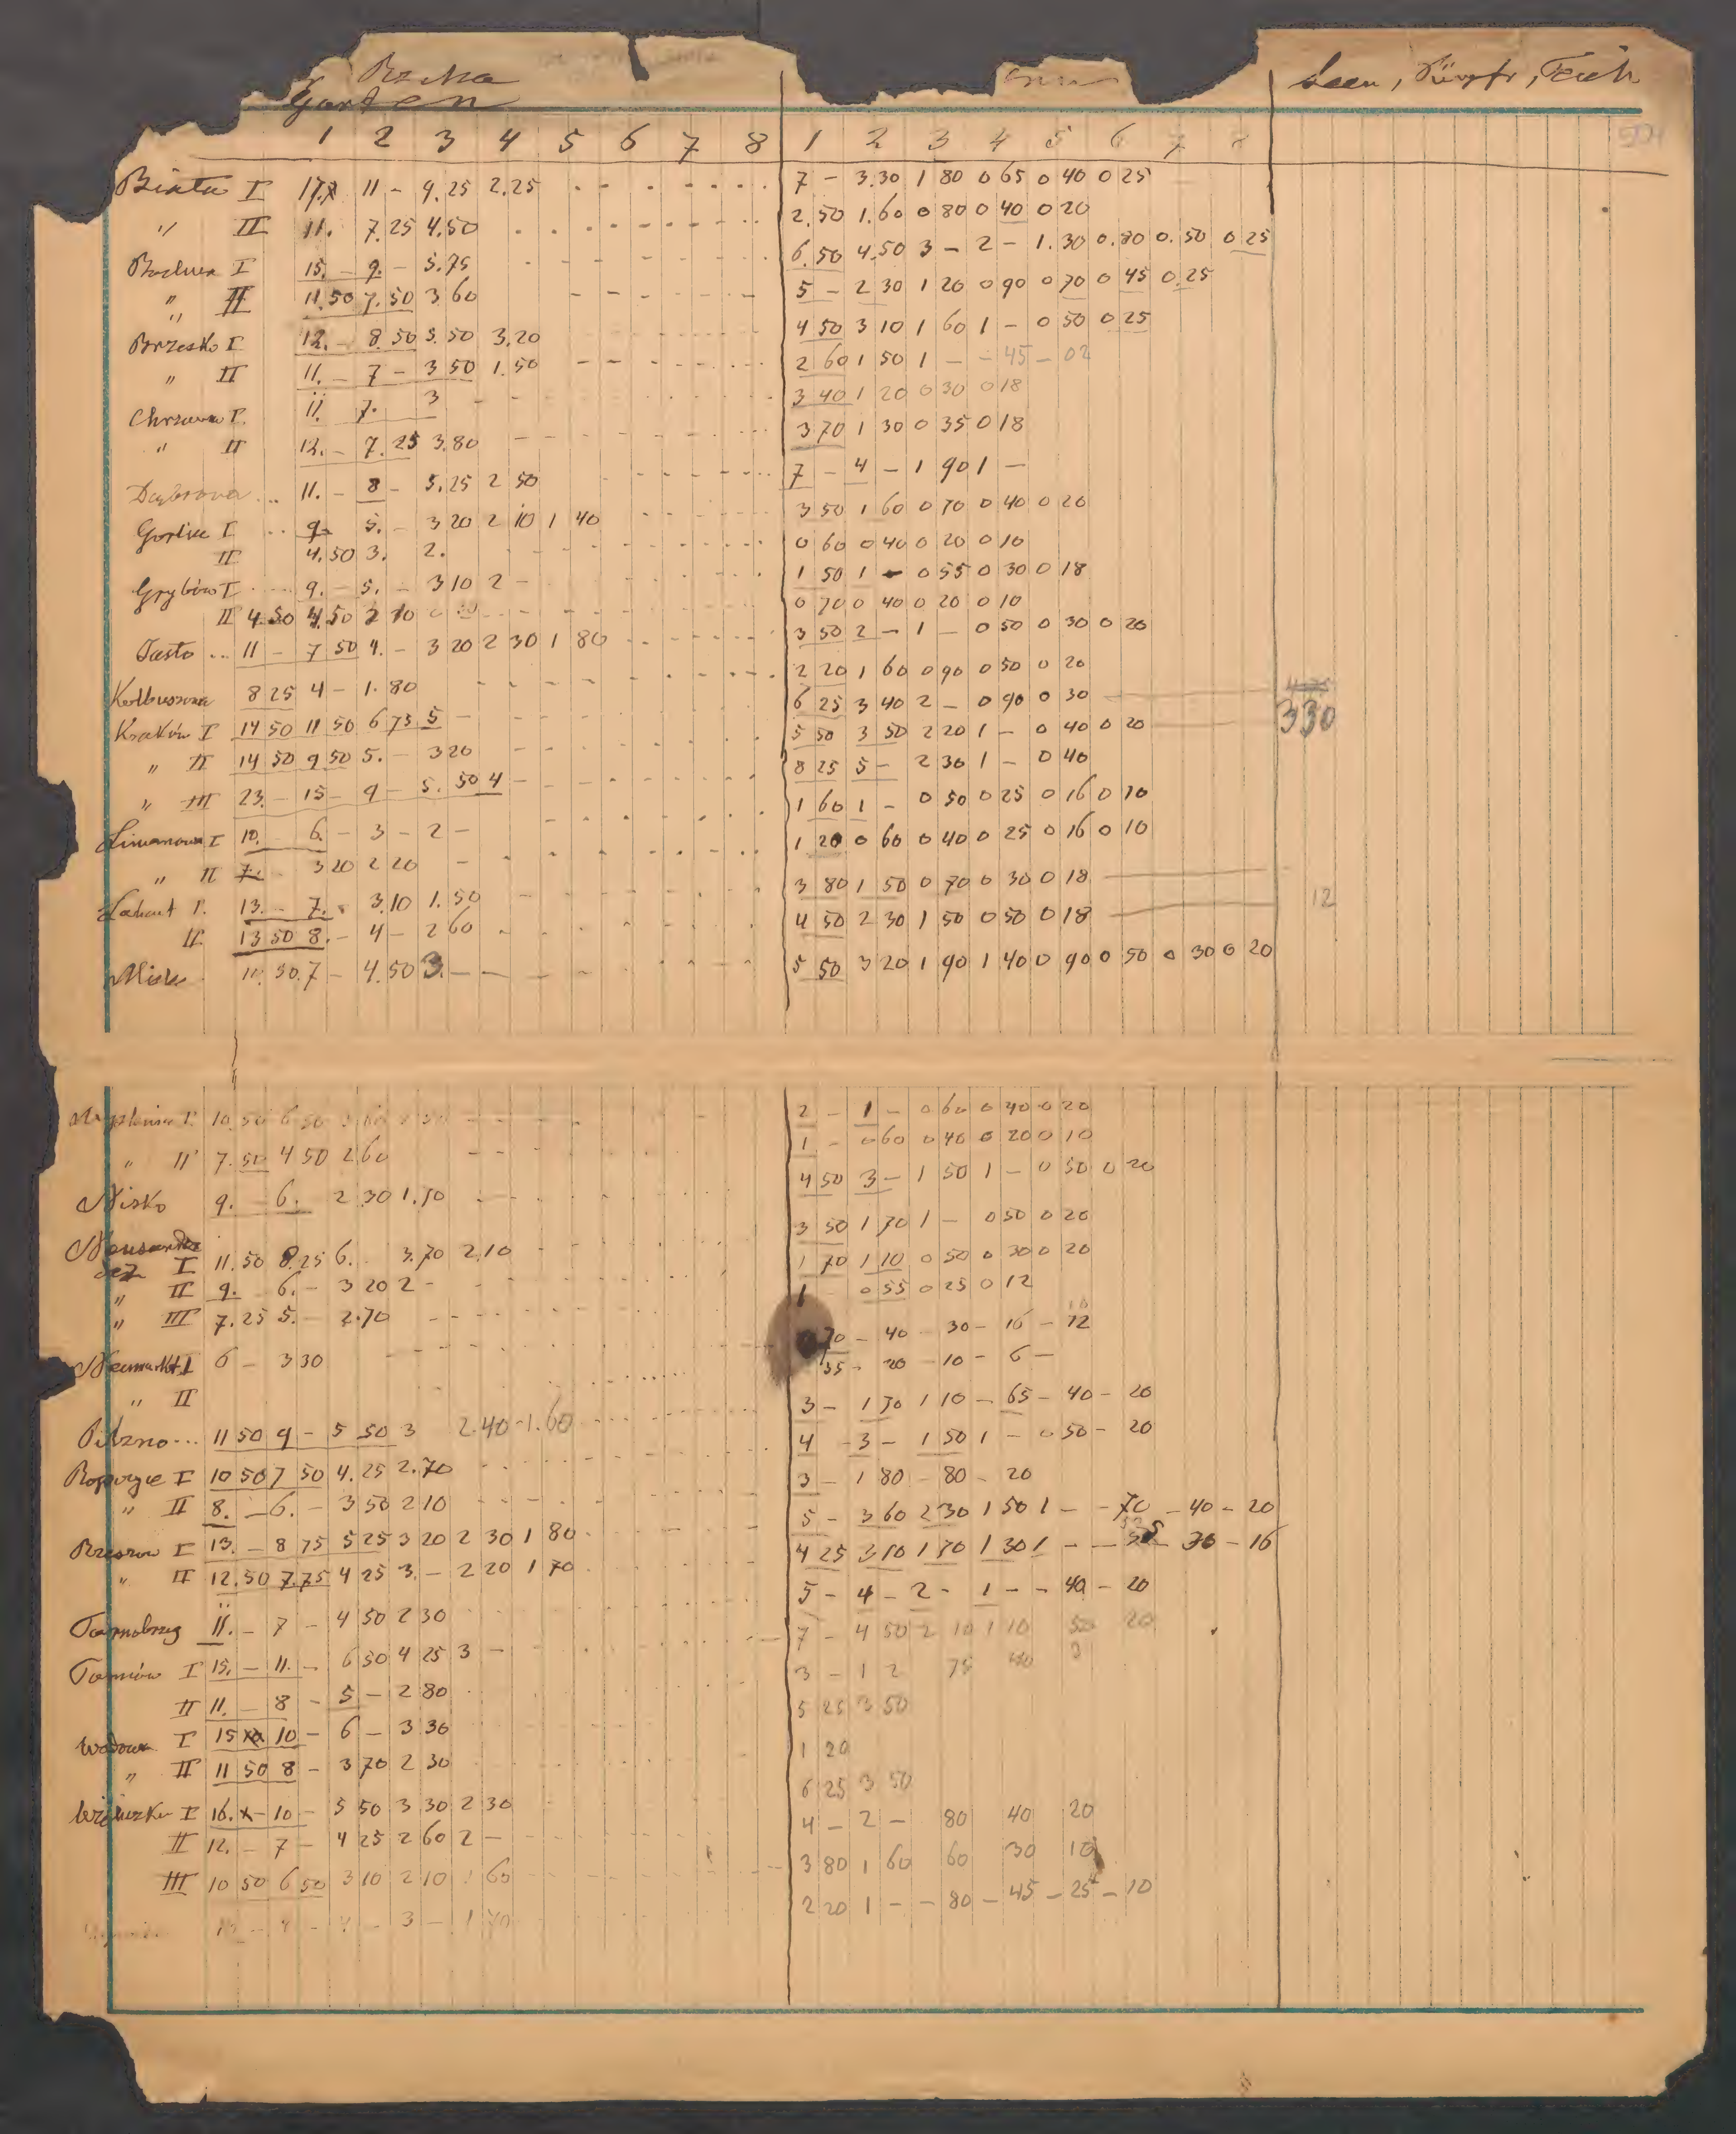 Garten
Seen, Sümpfe, Teich
1 2 3 4 5 6 7 8 1 2 3 4 5 6 7 8
Biała I 17. 11 - 9.25 2.25 7 - 3.30 1 80 0 65 0 40 0 25
" II 11. 7.25 4.50 2.50 1.60 0 80 0 40 0 20
Bochnia I 15. - 9. - 5.75 6.50 4.50 3 - 2 - 1.30 0.80 0.50 0 25
" II 11.50 7.50 3 60 5 - 2 30 1 20 0 90 0 70 0 45 0.25
Brzesko I 12. - 8.50 5.50 3.20 4 50 3 10 1 60 1 - 0 50 0 25
" II 11. - 7 - 3 50 1.50 2 60 1 50 1 - - 45 - 02
Chrzanow I. 11. 7. 3 3 40 1 20 0 30 0 18
" II 12. - 7.25 3.80 3 70 1 30 0 35 0 18
Dąbrowa ... 11. - 8 - 5.25 2 50 7 - 4 - 1 90 1 -
Gorlice I .. 9. 5. - 3 20 2 10 1 40 3 50 1 60 0 70 0 40 0 20
II 4.50 3. 2. 0 60 0 40 0 20 0 10
Grybów I 9. - 5. - 3 10 2 - 1 50 1 - 0 55 0 30 0 18
II 4.50 4.50 2 10 0 70 0 40 0 20 0 10
Jasło ... 11 - 7 50 4. - 3 20 2 30 1 80 3 50 2 - 1 - 0 50 0 30 0 20
Kolbuszowa 8 25 4 - 1.80 2 20 1 60 0 90 0 50 0 20
Kraków I 14 50 11 50 6 75 5 - 6 25 3 40 2 - 0 90 0 30 330
" II 14 50 9 50 5. - 3 20 5 50 3 50 2 20 1 - 0 40 0 20
" III 23. - 15 - 9 - 5.50 4 - 8 25 5 - 2 30 1 - 0 40
Limanowa I 10. 6. - 3 - 2 - 1 60 1 - 0 50 0 25 0 16 0 10
" II 7. 3 20 2 20 - 1 20 0 60 0 40 0 25 0 16 0 10
Łańcut I. 13. - 7. 3.10 1.50 3 80 1 50 0 70 0 30 0 18 12
II. 13 50 8. - 4 - 2 60 4 50 2 30 1 50 0 50 0 18
Mielec 11. 30. 7 - 4.50 3. - 5 50 3 20 1 90 1 40 0 90 0 50 0 30 0 20
I 10.50 6 50 2 - 1 - 0 60 0 40 0 20
" II 7.50 4 50 2 60 1 - 0 60 0 40 0 20 0 10
Nisko 9. 6. 2 30 1.50 4 50 3 - 1 50 1 - 0 50 0 20
Neusandez I 11.50 8.25 6. 3.70 2.10 3 50 1 70 1 - 0 50 0 20
" II 9. 6. - 3 20 2 - 1 70 1 10 0 50 0 30 0 20
" III 7.25 5. - 2.70 1 - 0 55 0 25 0 12
Neumarkt I 6 - 3 30 70 - 40 - 30 - 16 - 12
" II 35 - 20 - 10 - 6 -
Pilzno ... 11 50 9 - 5 50 3 2.40 - 1.60 3 - 1 70 1 10 - 65 - 40 - 20
Ropczyce I 10 50 7 50 4.25 2.70 4 - 3 - 1 50 1 - 0 50 - 20
" II 8. - 6. - 3 50 2 10 3 - 1 80 - 80 - 20
Rzeszow I 13. - 8 75 5 25 3 20 2 30 1 80 5 - 3 60 2 30 1 50 1 - - 70 - 40 - 20
" II 12.50 7.75 4 25 3. - 2 20 1 70 4 25 3 10 1 70 1 30 1 - - 30 - 16
Tarnobrzeg 11. - 7 - 4 50 2 30 5 - 4 - 2 - 1 - - 40 - 20
Tarnów I 15. - 11. - 6 50 4 25 3 - 7 - 4 50 2 10 1 10 50 20
II 11. - 8 - 5 - 2 80 3 - 1 2 75 40
Wadowice I 15 10 - 6 - 3 30 5 25 3 50
" II 11 50 8 - 3 70 2 30 1 20
Wieliczka I 16. - 10 - 5 50 3 30 2 30 6 25 3 50
II 12. - 7 - 4 25 2 60 2 - 4 - 2 - 80 40 20
III 10 50 6 50 3 10 2 10 1 60 3 80 1 60 60 30 10
3 - 1 70 2 20 1 - - 80 - 45 - 25 - 10